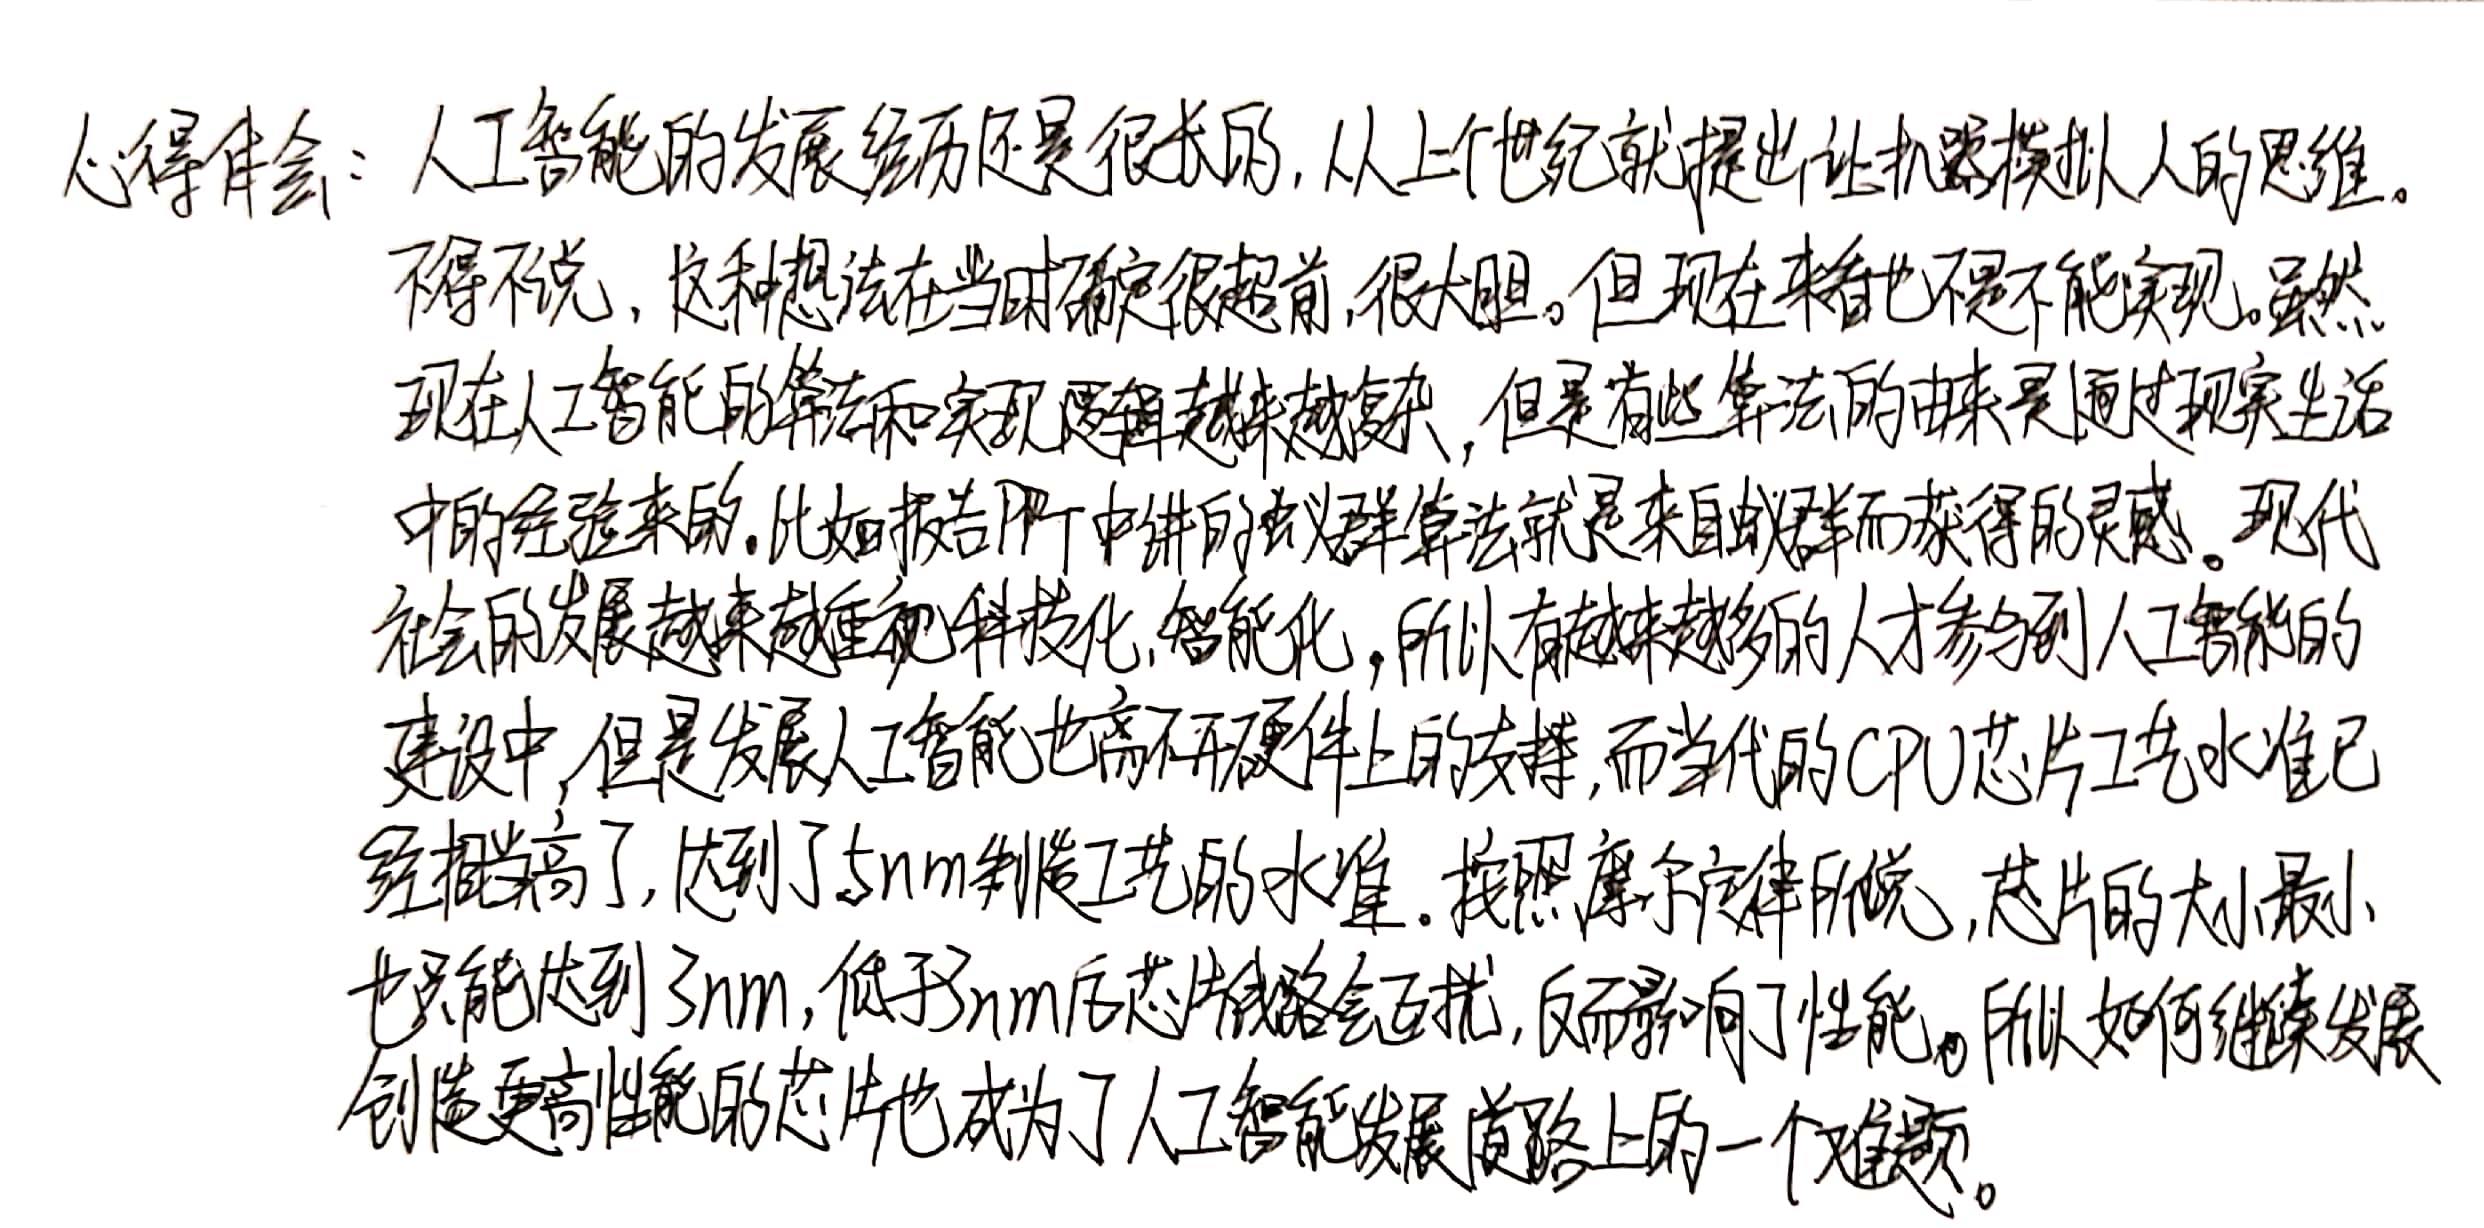 心得体会：人工智能的发展经历还是很长的，从上个世纪就提出让机器模拟人的思维。
不得不说，这种想法在当时确定很超前，很大胆。但现在来看也不是不能实现。虽然
现在人工智能的算法和实现逻辑越来越复杂，但是有些算法的由来是通过现实生活
中的经验来的。比如报告PPT中讲的蚁群算法就是来自蚁群而获得的灵感。现代
社会的发展越来越重视科技化、智能化，所以有越来越多的人才参与到人工智能的
建设中，但是发展人工智能也离不开硬件上的支撑，而当代的CPU芯片工艺水准已
经相当高了，达到了5nm制造工艺的水准。按照摩尔定律所说，芯片的大小最小
也只能达到3nm，低于3nm后芯片线路会互扰，反而影响了性能。所以如何继续发展
创造更高性能的芯片也成为了人工智能发展道路上的一个难题。